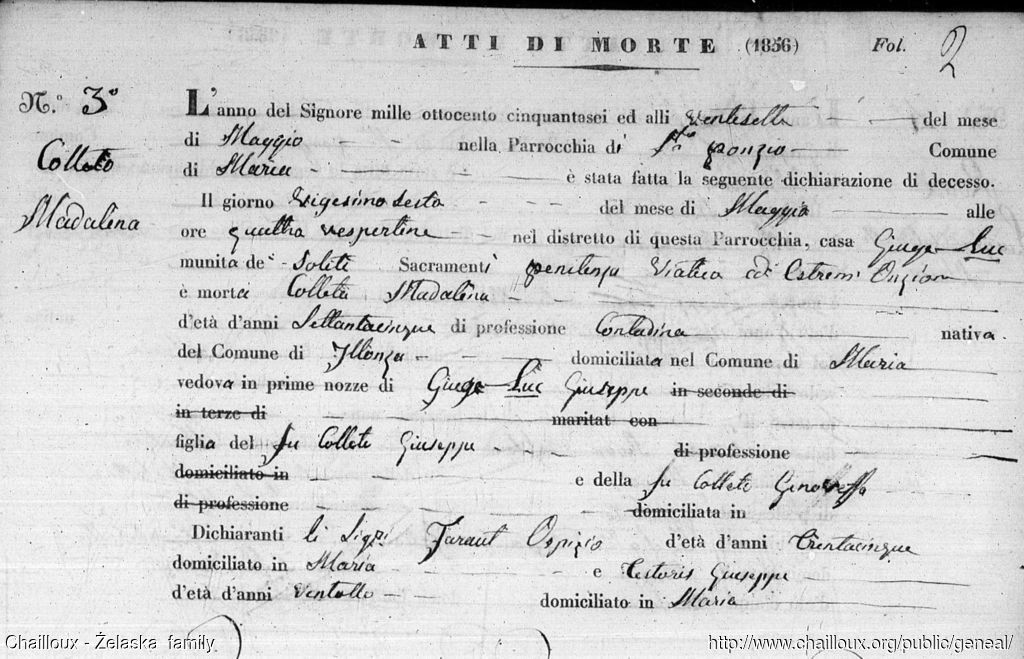 ATTI DI MORTE (1856) Fol. 2
N.° 3°
L'anno del Signore mille ottocento cinquantasei ed alli ventisette del mese
di Maggio nella Parrocchia di Sn ponzio Comune
Colleto
di Maria è stata fatta la seguente dichiarazione di decesso.
Madalena
Il giorno Vigesimo Sesto del mese di Maggio alle
ore quattro vespertine nel distretto di questa Parrocchia, casa Giuge Luc
munita de' Soliti Sacramenti penitenza Viatico ed Estrem Onzion
è morta Colleta Madalena
d'età d'anni Settantacinque di professione Contadina nativa
del Comune di Illonza domiciliata nel Comune di Maria
vedova in prime nozze di Giuge Luc Giuseppe in seconde di
in terze di maritat con
figlia del fu Colleti Giuseppe di professione
domiciliato in e della fu Colleti
di professione domiciliata in
Dichiaranti li Sigri Faraut Ospizio d'età d'anni trentacinque
domiciliato in Maria e Testoris Giuseppe
d'età d'anni Ventotto domiciliato in Maria
Chailloux - Želaska family
http://www.chailloux.org/public/geneal/